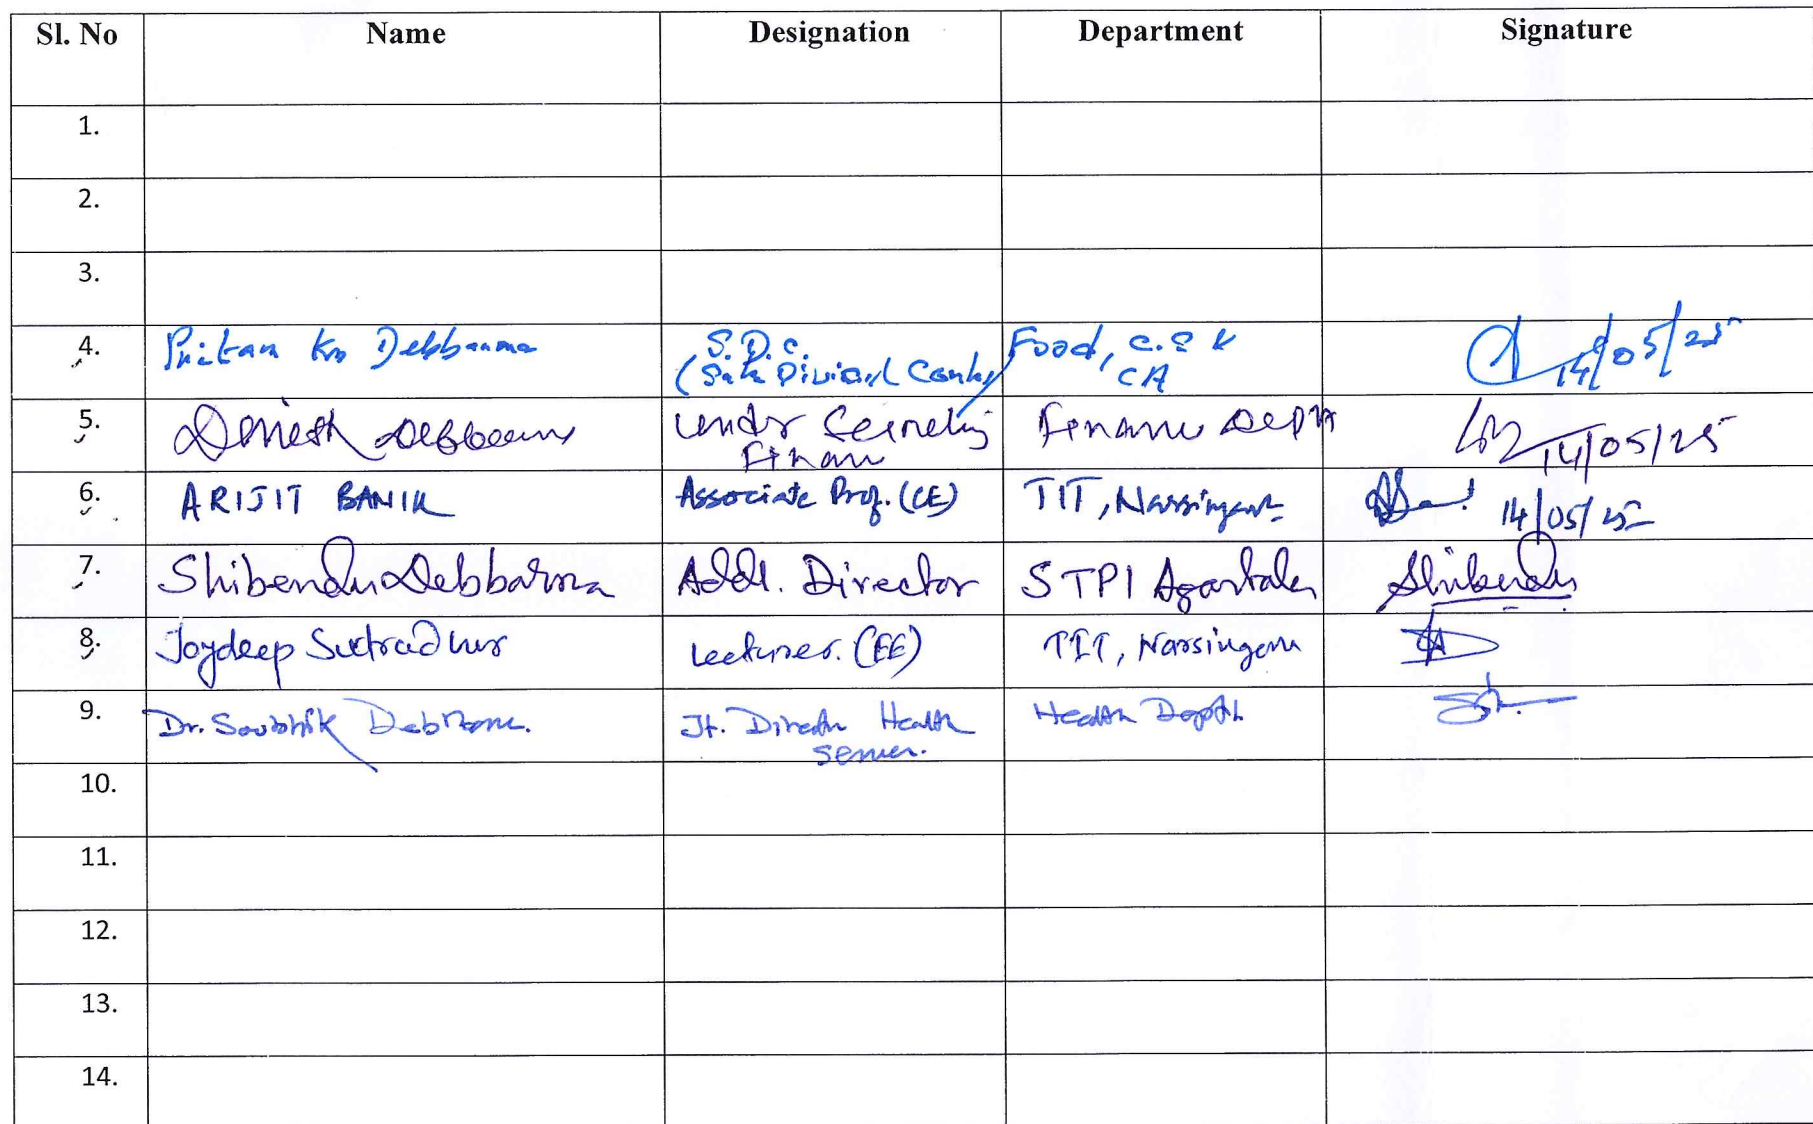 Sl. No Name Designation Department Signature
1.
2.
3.
4. Pritam Kr Debbarma S.D.C. Food, C.S &
(Sub Divisional CA 14/05/25
5. Debbarma Under Secretary Finance Deptt 14/05/25
Finance
6. ARIJIT BANIK Associate Prof. (CE) TIT, Narsingarh 14/05/25
7. Shibendu Debbarma Addl. Director STPI Agartala Shibendu
8. Joydeep Sutradhar Lecturer. (EE) TIT, Narsingarh
9. Dr. Soubhik Debbarma. Jt. Director Health Health Deptt
10.
11.
12.
13.
14.